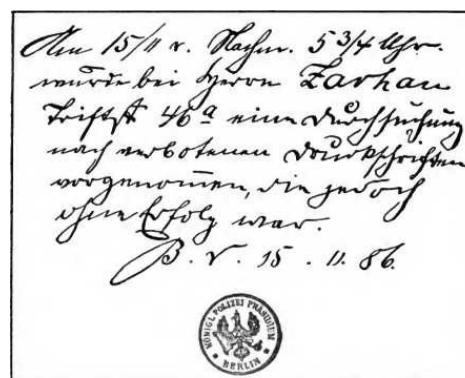 Am 15/11 r. Nachm. 5 3/4 Uhr.
wurde bei Herrn Zarhau
Triftstr 46a eine Durchsuchung
nach verbotenen Druckschriften
vorgenommen, die jedoch
ohne Erfolg war.
B. d. 15. 11. 86.
KÖNIGL. POLIZEI PRÄSIDIUM
* BERLIN *